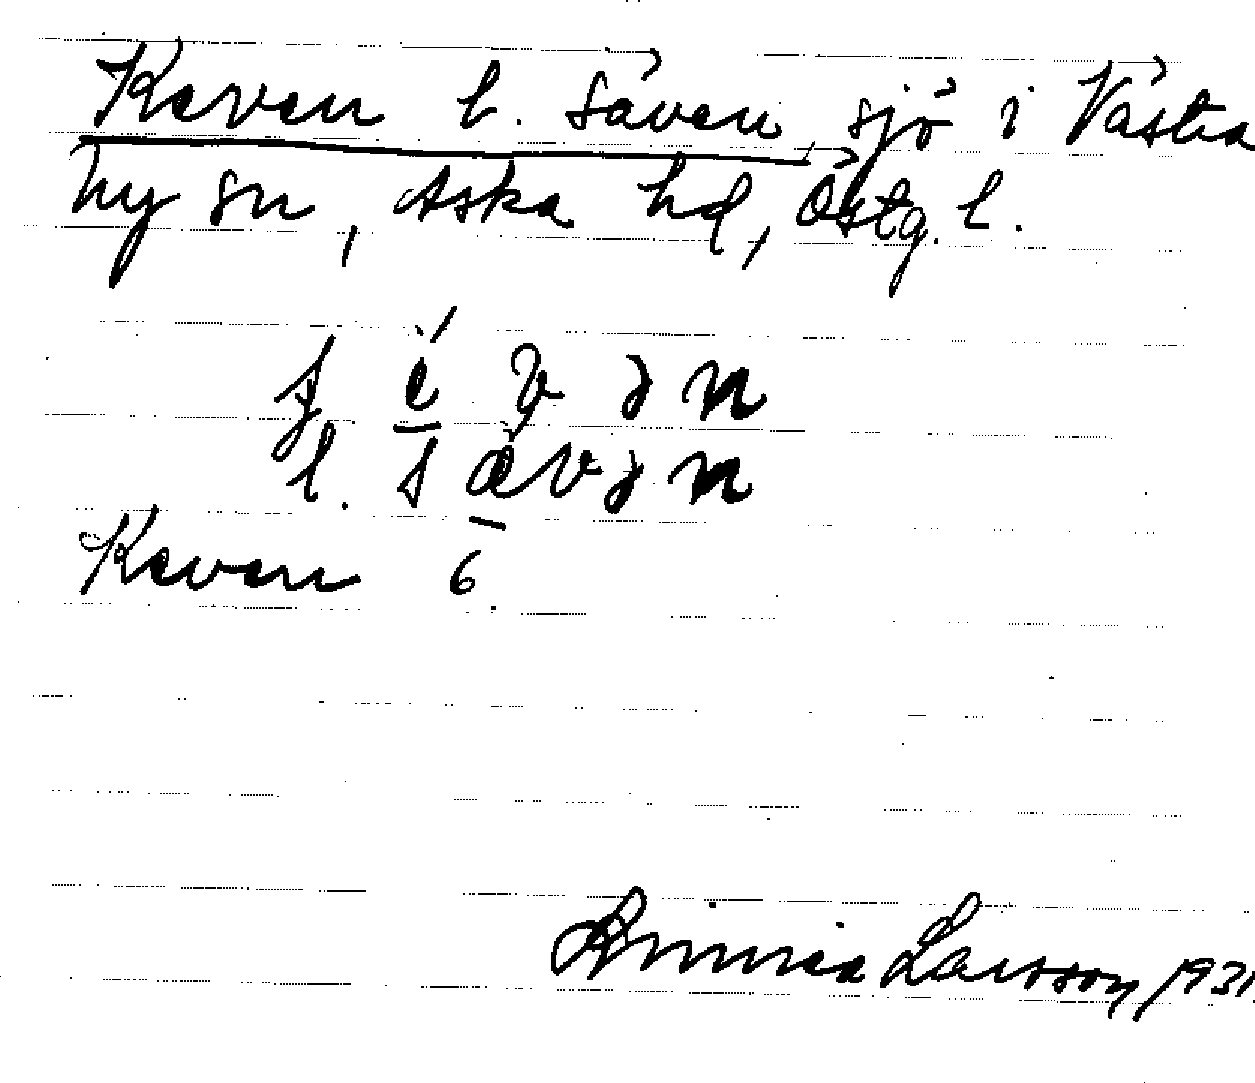 Keven l. Säven sjö i Västra
Ny sn, Aska hd, Östg. l.
ʃ é v ə n
l. s æ v ə n
Keven 6.
Larsson 1931.